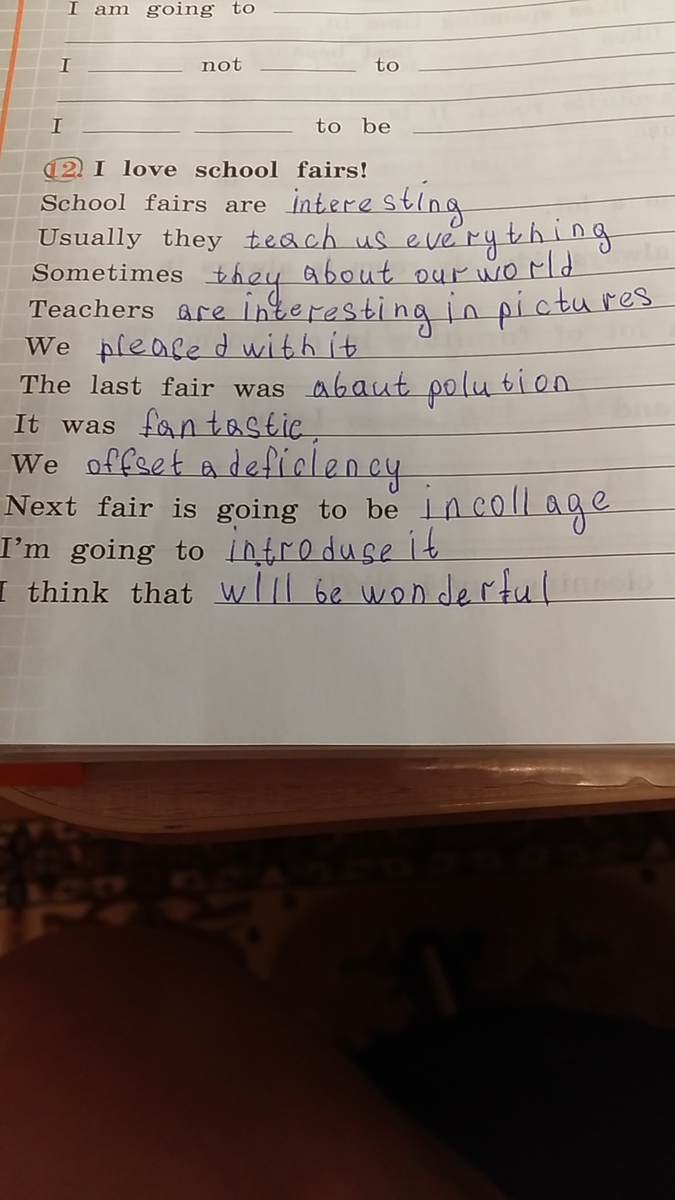 I am going to
I ____ not ____ to
I ____ ____ to be
12. I love school fairs!
School fairs are interesting
Usually they teach us everything
Sometimes they about our world
Teachers are interesting in pictures
We pleased with it
The last fair was abaut polution
It was fantastic.
We offset a deficiency
Next fair is going to be in collage
I'm going to introduse it
I think that will be wonderful